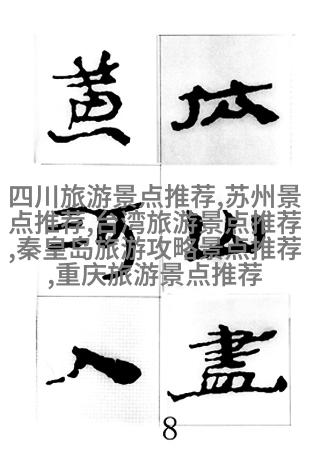 依山盡
黄河入
四川旅游景点推荐,苏州景
点推荐,台湾旅游景点推荐
,秦皇岛旅游攻略景点推荐
,重庆旅游景点推荐
8